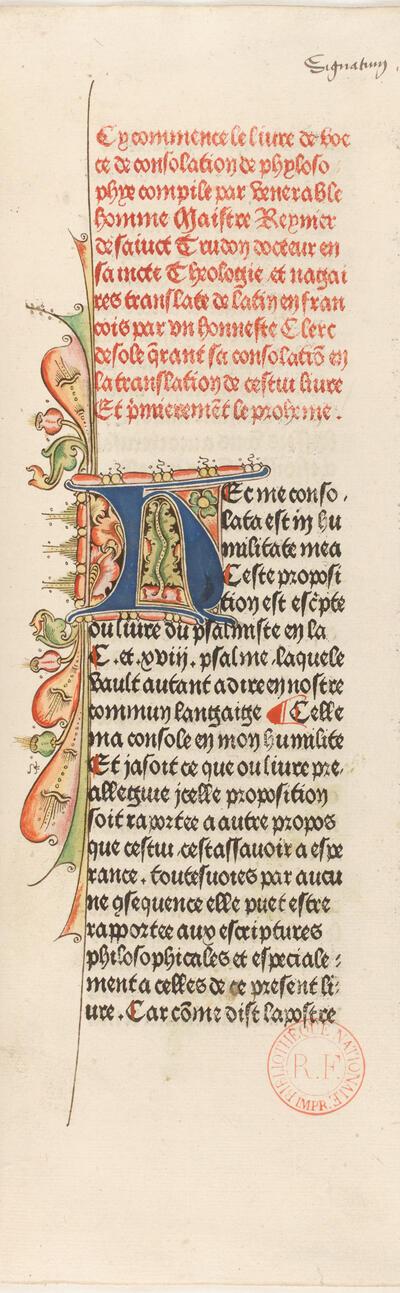 Signatum
Cy commence le liure de boe
ce de consolation de phyloso
phye compile par venerable
homme Maistre Reynier
de sainct Trudon docteur en
saincte Theologie et nagai
res translate de latin en fran
cois par vn honneste Clerc
desole q̄rant sa consolatiō en
la translation de cestui liure
Et p̄mierement le prohyme.
HEc me conso,
lata est in hu
militate mea
Ceste proposi
tion est escp̄te
ou liure du psalmiste en la
C.et.xviij.psalme.laquele
vault autant a dire en nostre
commun langaige Celle
ma console en mon humilite
Et ja soit ce que ou liure pre,
alleguie jcelle proposition
soit raportee a autre propos
que cestui.cestassauoir a espe
rance.toutesuoies par aucu
ne ꝯsequence elle puet estre
rapportee aux escriptures
philosophicales et especiale:
ment a celles de ce present li:
ure.Car cōme dist lapostre
BIBLIOTHÈQUE NATIONALE
R.F.
IMPR.